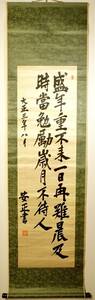 盛年重不来一日再難晨及
時當勉勵歳月不待人
大正三年八月